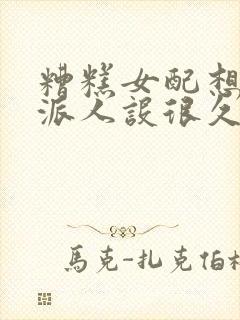 糟糕女配想
派人設很久
馬克-扎克伯格